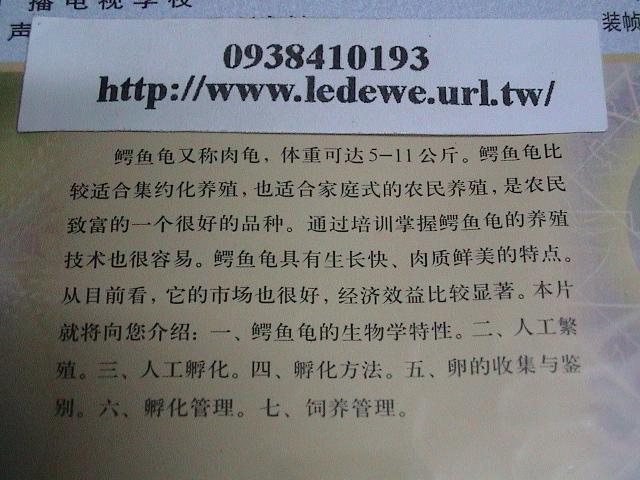 播电视学校
声
装帧
0938410193
http://www.ledewe.url.tw/
鳄鱼龟又称肉龟，体重可达5-11公斤。鳄鱼龟比
较适合集约化养殖，也适合家庭式的农民养殖，是农民
致富的一个很好的品种。通过培训掌握鳄鱼龟的养殖
技术也很容易。鳄鱼龟具有生长快、肉质鲜美的特点。
从目前看，它的市场也很好，经济效益比较显著。本片
就将向您介绍：一、鳄鱼龟的生物学特性。二、人工繁
殖。三、人工孵化。四、孵化方法。五、卵的收集与鉴
别。六、孵化管理。七、饲养管理。